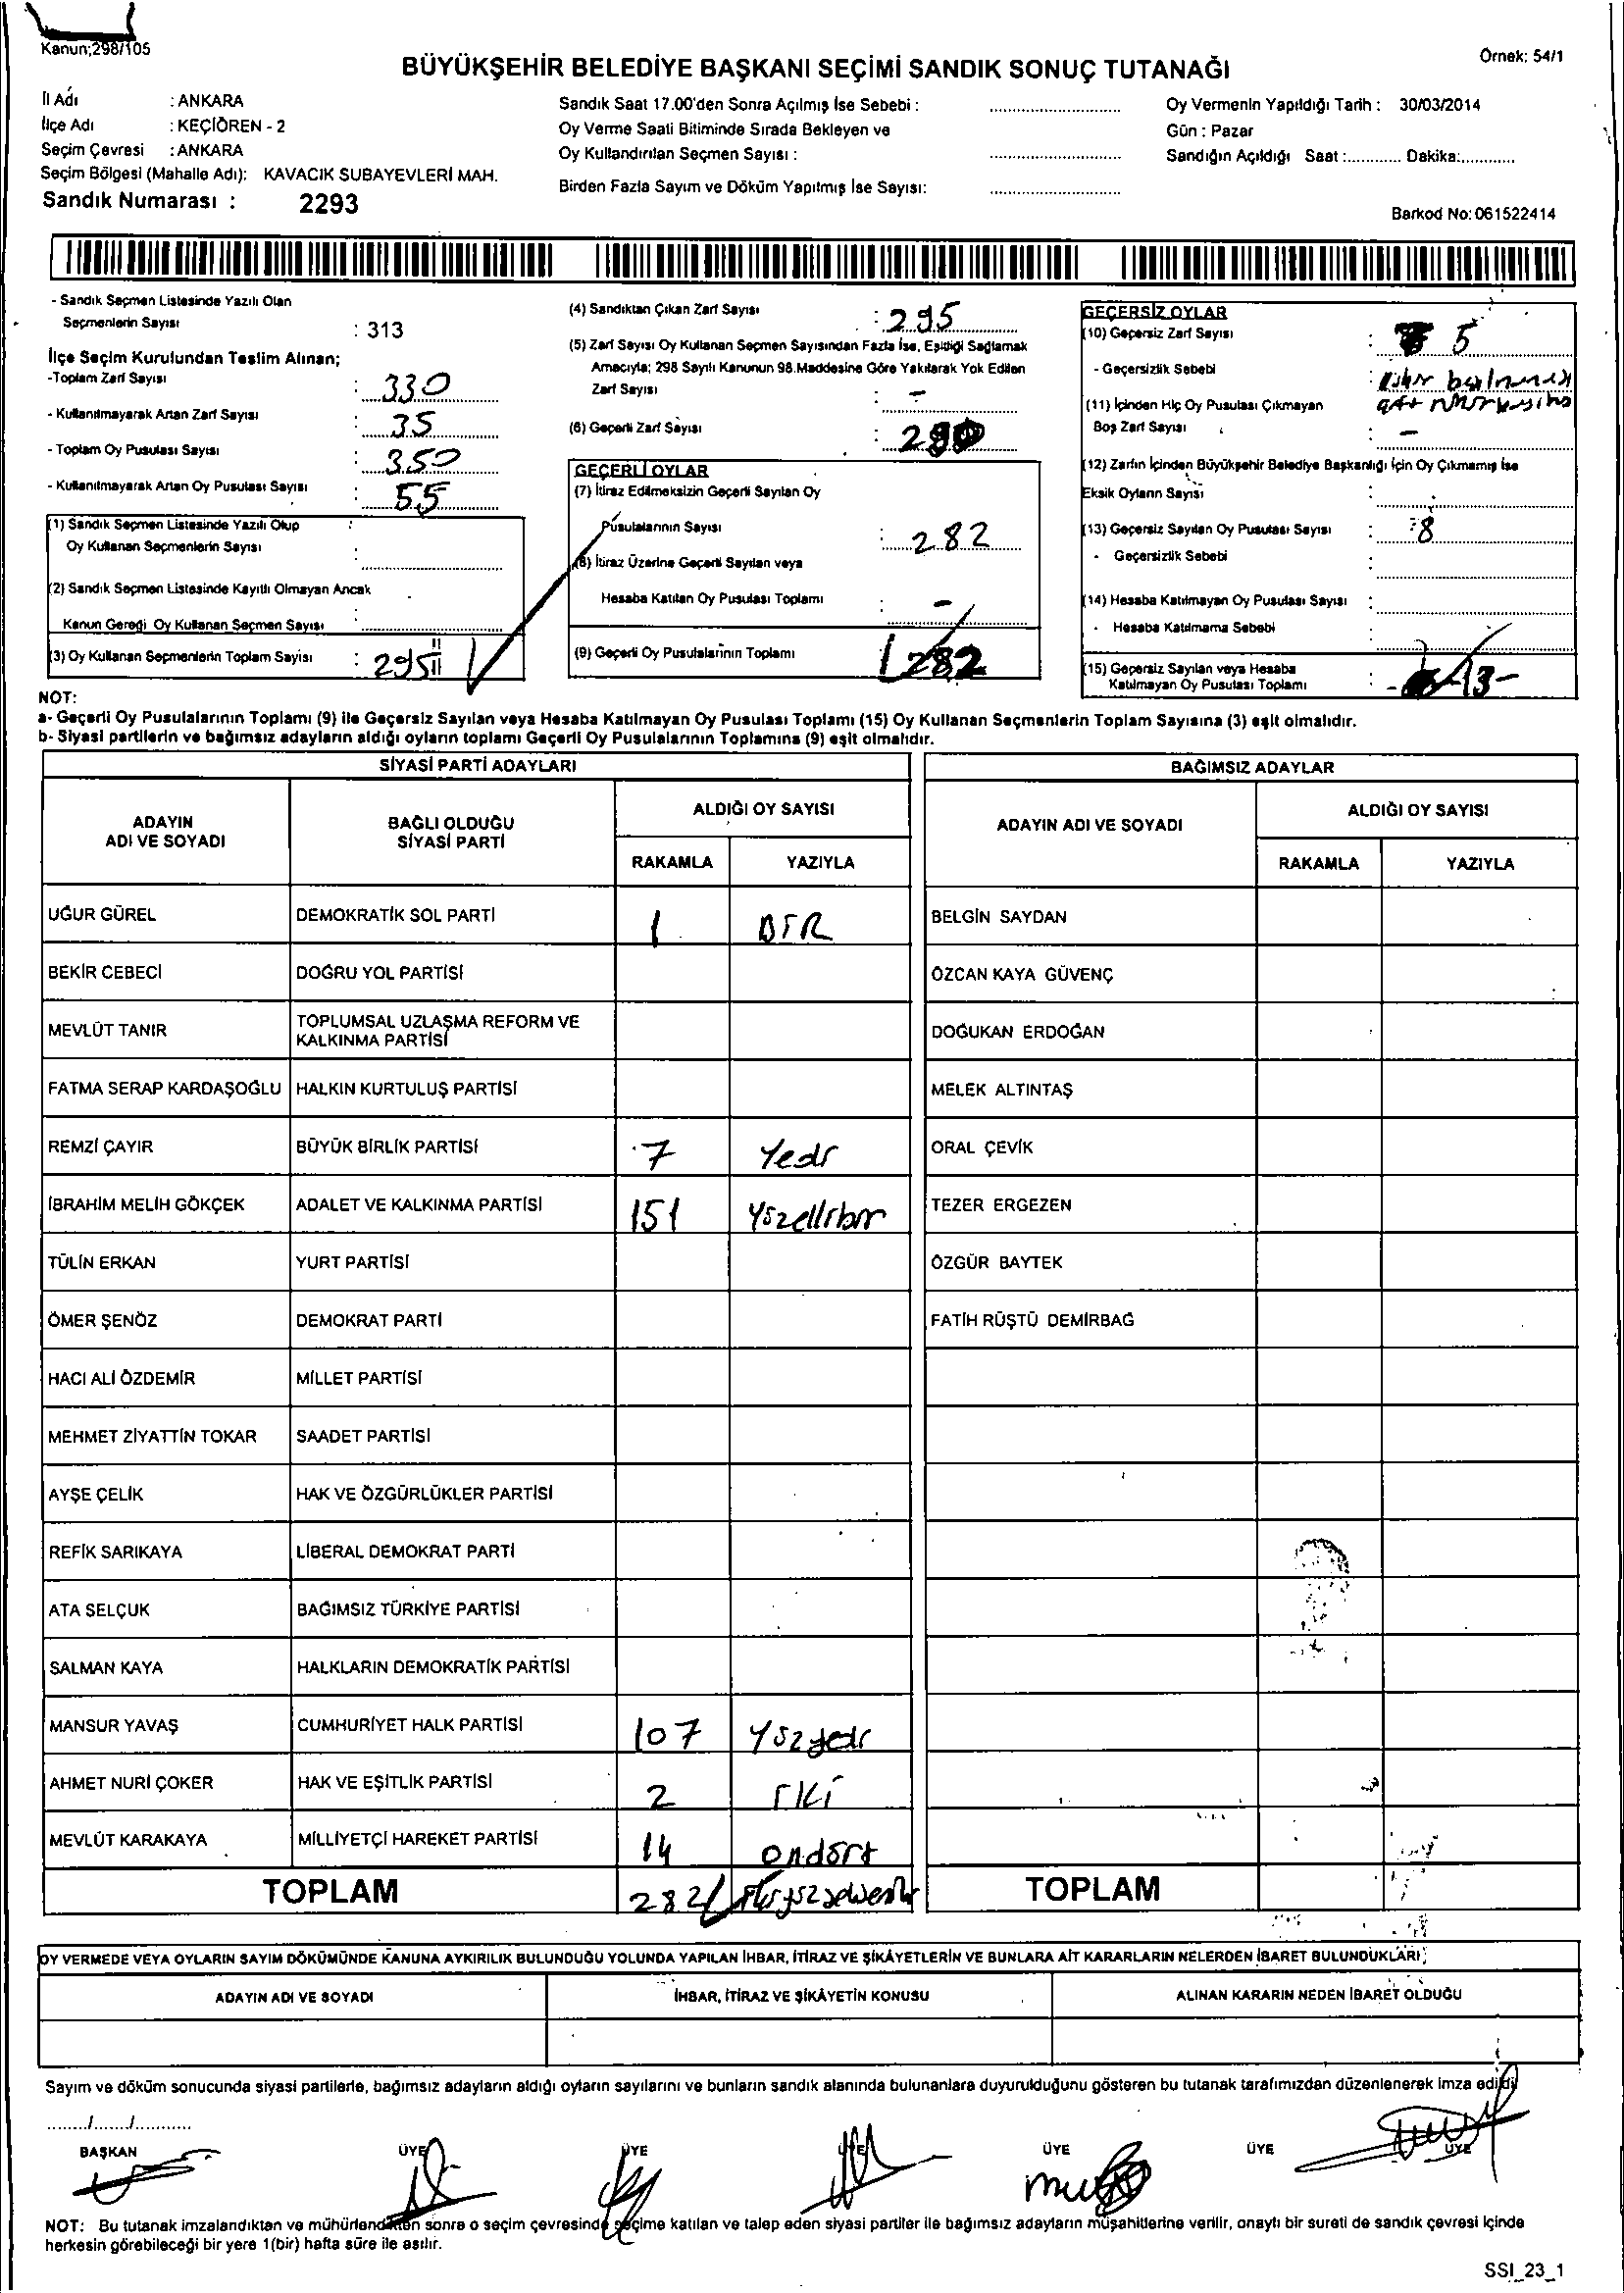 Kanun;298/105
Örnek: 54/1
BÜYÜKŞEHİR BELEDİYE BAŞKANI SEÇİMİ SANDIK SONUÇ TUTANAĞI
İl Adı : ANKARA
İlçe Adı : KEÇİÖREN - 2
Seçim Çevresi : ANKARA
Seçim Bölgesi (Mahalle Adı): KAVACIK SUBAYEVLERİ MAH.
Sandık Numarası : 2293
Sandık Saat 17.00'den Sonra Açılmış İse Sebebi :
Oy Verme Saati Bitiminde Sırada Bekleyen ve
Oy Kullandırılan Seçmen Sayısı :
Birden Fazla Sayım ve Döküm Yapılmış İse Sayısı:
Oy Vermenin Yapıldığı Tarih : 30/03/2014
Gün : Pazar
Sandığın Açıldığı Saat :............ Dakika:............
Barkod No: 061522414
- Sandık Seçmen Listesinde Yazılı Olan
Seçmenlerin Sayısı : 313
İlçe Seçim Kurulundan Teslim Alınan;
-Toplam Zarf Sayısı : 330
- Kullanılmayarak Artan Zarf Sayısı : 35
- Toplam Oy Pusulası Sayısı : 350
- Kullanılmayarak Artan Oy Pusulası Sayısı : 55
(1) Sandık Seçmen Listesinde Yazılı Olup
Oy Kullanan Seçmenlerin Sayısı :
(2) Sandık Seçmen Listesinde Kayıtlı Olmayan Ancak
Kanun Gereği Oy Kullanan Seçmen Sayısı :
(3) Oy Kullanan Seçmenlerin Toplam Sayısı : 295
(4) Sandıktan Çıkan Zarf Sayısı : 295
(5) Zarf Sayısı Oy Kullanan Seçmen Sayısından Fazla İse, Eşitliği Sağlamak
Amacıyla; 298 Sayılı Kanunun 98.Maddesine Göre Yakılarak Yok Edilen
Zarf Sayısı : -
(6) Geçerli Zarf Sayısı : 290
GEÇERLİ OYLAR
(7) İtiraz Edilmeksizin Geçerli Sayılan Oy
Pusulalarının Sayısı : 282
(8) İtiraz Üzerine Geçerli Sayılan veya
Hesaba Katılan Oy Pusulası Toplamı : -
(9) Geçerli Oy Pusulalarının Toplamı 282
GEÇERSİZ OYLAR
(10) Geçersiz Zarf Sayısı : 5
- Geçersizlik Sebebi :
(11) İçinden Hiç Oy Pusulası Çıkmayan
Boş Zarf Sayısı : -
(12) Zarfın İçinden Büyükşehir Belediye Başkanlığı İçin Oy Çıkmamış İse
Eksik Oyların Sayısı :
(13) Geçersiz Sayılan Oy Pusulası Sayısı : 8
- Geçersizlik Sebebi :
(14) Hesaba Katılmayan Oy Pusulası Sayısı :
- Hesaba Katılmama Sebebi :
(15) Geçersiz Sayılan veya Hesaba
Katılmayan Oy Pusulası Toplamı : 13-
NOT:
a- Geçerli Oy Pusulalarının Toplamı (9) ile Geçersiz Sayılan veya Hesaba Katılmayan Oy Pusulası Toplamı (15) Oy Kullanan Seçmenlerin Toplam Sayısına (3) eşit olmalıdır.
b- Siyasi partilerin ve bağımsız adayların aldığı oyların toplamı Geçerli Oy Pusulalarının Toplamına (9) eşit olmalıdır.
SİYASİ PARTİ ADAYLARI
ADAYIN ADI VE SOYADI BAĞLI OLDUĞU SİYASİ PARTİ ALDIĞI OY SAYISI
RAKAMLA YAZIYLA
UĞUR GÜREL DEMOKRATİK SOL PARTİ 1 BİR
BEKİR CEBECİ DOĞRU YOL PARTİSİ
MEVLÜT TANIR TOPLUMSAL UZLAŞMA REFORM VE KALKINMA PARTİSİ
FATMA SERAP KARDAŞOĞLU HALKIN KURTULUŞ PARTİSİ
REMZİ ÇAYIR BÜYÜK BİRLİK PARTİSİ 7 Yedi
İBRAHİM MELİH GÖKÇEK ADALET VE KALKINMA PARTİSİ 151 Yüzellibir
TÜLİN ERKAN YURT PARTİSİ
ÖMER ŞENÖZ DEMOKRAT PARTİ
HACI ALİ ÖZDEMİR MİLLET PARTİSİ
MEHMET ZİYATTİN TOKAR SAADET PARTİSİ
AYŞE ÇELİK HAK VE ÖZGÜRLÜKLER PARTİSİ
REFİK SARIKAYA LİBERAL DEMOKRAT PARTİ
ATA SELÇUK BAĞIMSIZ TÜRKİYE PARTİSİ
SALMAN KAYA HALKLARIN DEMOKRATİK PARTİSİ
MANSUR YAVAŞ CUMHURİYET HALK PARTİSİ 107 Yüzyedi
AHMET NURİ ÇOKER HAK VE EŞİTLİK PARTİSİ 2 İki
MEVLÜT KARAKAYA MİLLİYETÇİ HAREKET PARTİSİ 14 ondört
TOPLAM 282
BAĞIMSIZ ADAYLAR
ADAYIN ADI VE SOYADI ALDIĞI OY SAYISI
RAKAMLA YAZIYLA
BELGİN SAYDAN
ÖZCAN KAYA GÜVENÇ
DOĞUKAN ERDOĞAN
MELEK ALTINTAŞ
ORAL ÇEVİK
TEZER ERGEZEN
ÖZGÜR BAYTEK
FATİH RÜŞTÜ DEMİRBAĞ
TOPLAM
OY VERMEDE VEYA OYLARIN SAYIM DÖKÜMÜNDE KANUNA AYKIRILIK BULUNDUĞU YOLUNDA YAPILAN İHBAR, İTİRAZ VE ŞİKÂYETLERİN VE BUNLARA AİT KARARLARIN NELERDEN İBARET BULUNDUKLARI
ADAYIN ADI VE SOYADI İHBAR, İTİRAZ VE ŞİKÂYETİN KONUSU ALINAN KARARIN NEDEN İBARET OLDUĞU
Sayım ve döküm sonucunda siyasi partilerle, bağımsız adayların aldığı oyların sayılarını ve bunların sandık alanında bulunanlara duyurulduğunu gösteren bu tutanak tarafımızdan düzenlenerek imza edildi
......../......./............
BAŞKAN ÜYE ÜYE ÜYE ÜYE ÜYE ÜYE
NOT: Bu tutanak imzalandıktan ve mühürlendikten sonra o seçim çevresinde seçime katılan ve talep eden siyasi partiler ile bağımsız adayların müşahitlerine verilir, onaylı bir sureti de sandık çevresi içinde
herkesin görebileceği bir yere 1(bir) hafta süre ile asılır.
SSI_23_1